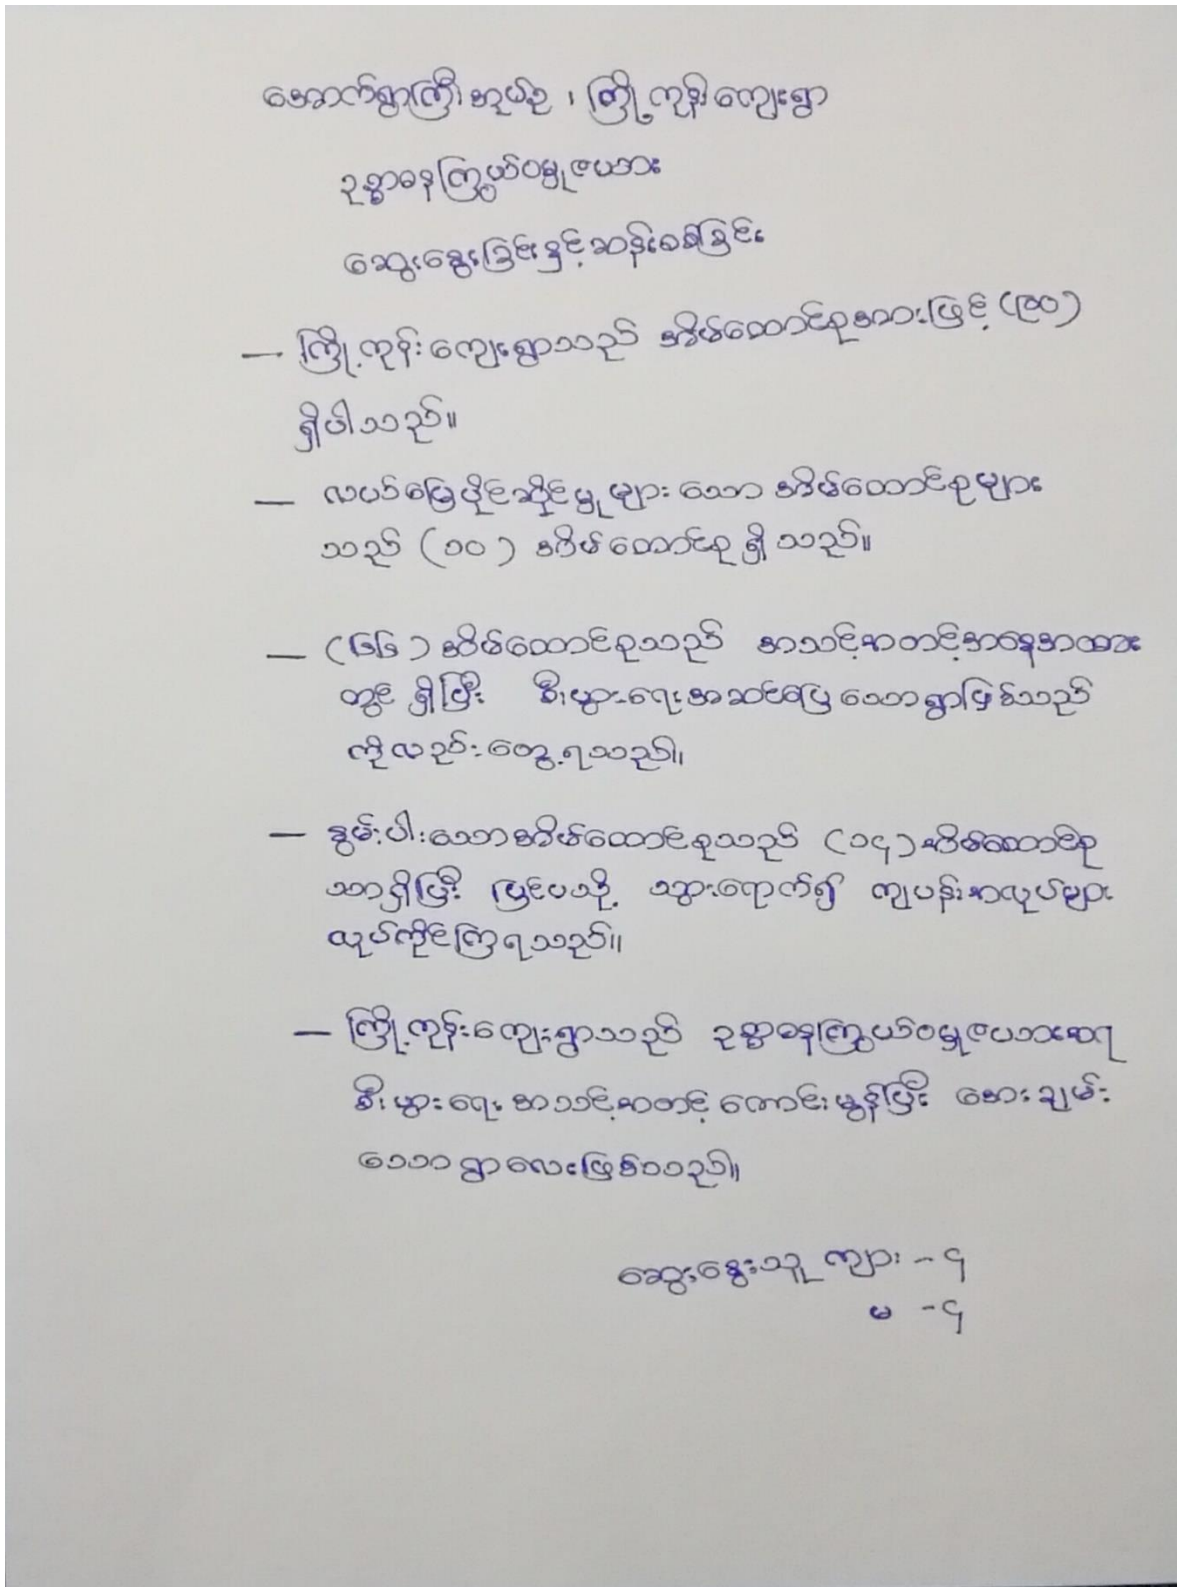 အောက်ရွာကြီးအုပ်စု ၊ ကြို့ကုန်းကျေးရွာ
ဥစ္စာဓနကြွယ်ဝမှုဇယား
ဆွေးနွေးခြင်းနှင့်ဆန်းစစ်ခြင်း
— ကြို့ကုန်းကျေးရွာသည် အိမ်ထောင်စုအားဖြင့် (၉၀)
ရှိပါသည်။
— လယ်မြေပိုင်ဆိုင်မှု များသော အိမ်ထောင်စုများ
သည် (၁၀) အိမ်ထောင်စု ရှိသည်။
— (၆၆) အိမ်ထောင်စုသည် အသင့်အတင့်အနေအထား
တွင် ရှိပြီး စီးပွားရေးအဆင်ပြေသောရွာဖြစ်သည်
ကိုလည်းတွေ့ရသည်။
— နွမ်းပါးသောအိမ်ထောင်စုသည် (၁၄) အိမ်ထောင်စု
သာရှိပြီး ပြင်ပသို့ သွားရောက်၍ ကျပန်းအလုပ်များ
လုပ်ကိုင်ကြရသည်။
— ကြို့ကုန်းကျေးရွာသည် ဥစ္စာဓနကြွယ်ဝမှုဇယားအရ
စီးပွားရေး အသင့်အတင့် ကောင်းမွန်ပြီး အေးချမ်း
သောရွာလေးဖြစ်သည်။
ဆွေးနွေးသူ ကျား - ၄
မ - ၄